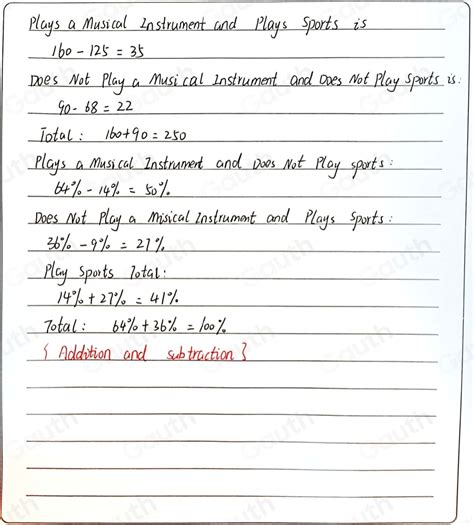 Plays a Musical Instrument and Plays Sports is
160 - 125 = 35
Does Not Play a Musical Instrument and Does Not Play Sports is:
90 - 68 = 22
Total: 160+90 = 250
Plays a Musical Instrument and Does Not Play sports:
64% - 14% = 50%.
Does Not Play a Misical Instrument and Plays Sports:
36% - 9% = 27%.
Play Sports Total:
14% + 27% = 41%.
Total: 64% + 36% = 100%.
{ Addition and subtraction }
Gauth